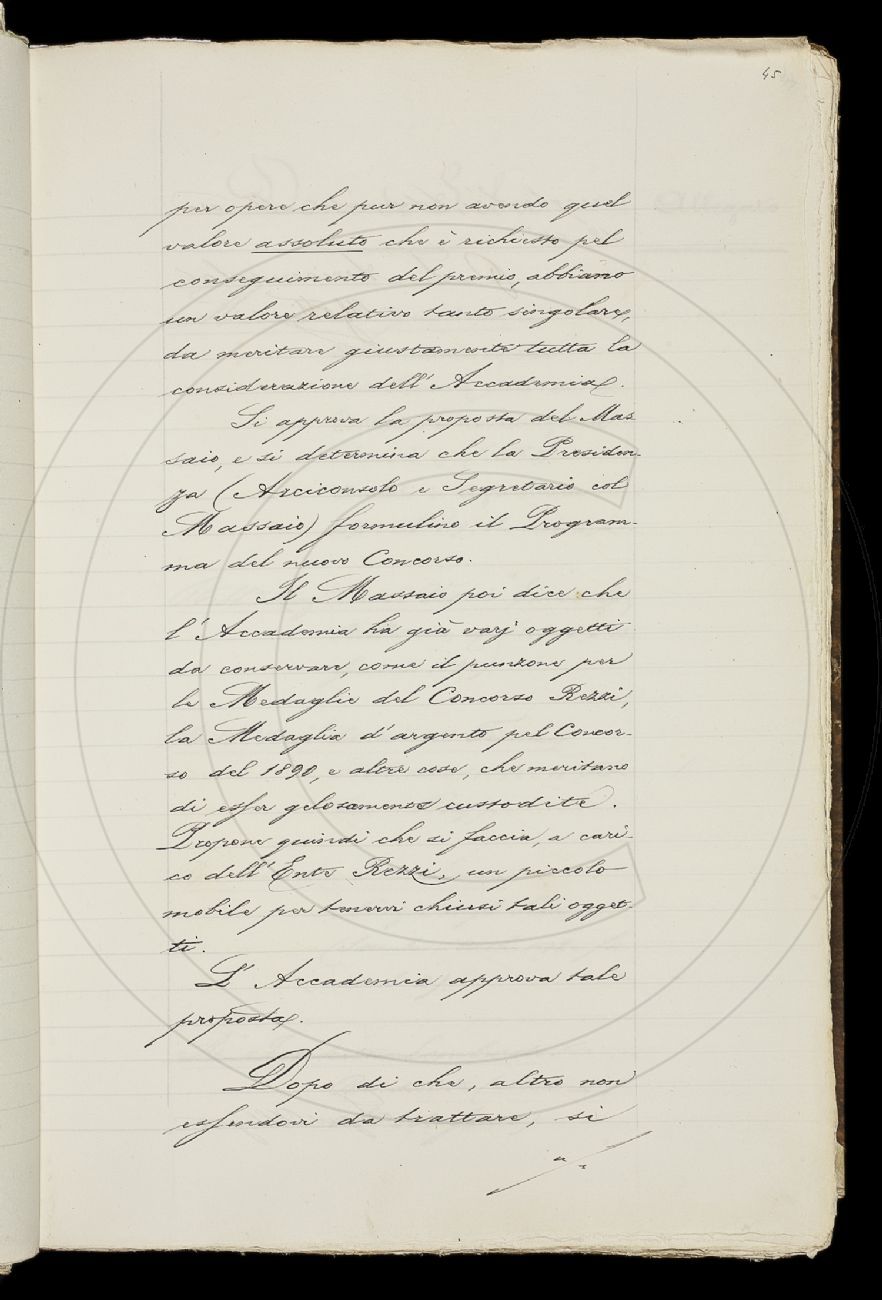 45
per opere che pur non avendo quel
valore assoluto che è richiesto pel
conseguimento del premio, abbiano
un valore relativo tanto singolare,
da meritare giustamente tutta la
considerazione dell'Accademia.
Si approva la proposta del Mas
saio, e si determina che la Presiden-
za (Arciconsolo e Segretario col
Massaio) formulino il Program-
ma del nuovo Concorso.
Il Massaio poi dice che
l'Accademia ha già varj oggetti
da conservare, come il punzone per
le Medaglie del Concorso Rezzi,
la Medaglia d'argento pel Concor-
so del 1890, e altre cose, che meritano
di esser gelosamente custodite.
Propone quindi che si faccia, a cari-
co dell'Ente Rezzi, un piccolo
mobile per tenervi chiusi tali ogget-
ti.
L'Accademia approva tale
proposta.
Dopo di che, altro non
essendovi da trattare, si